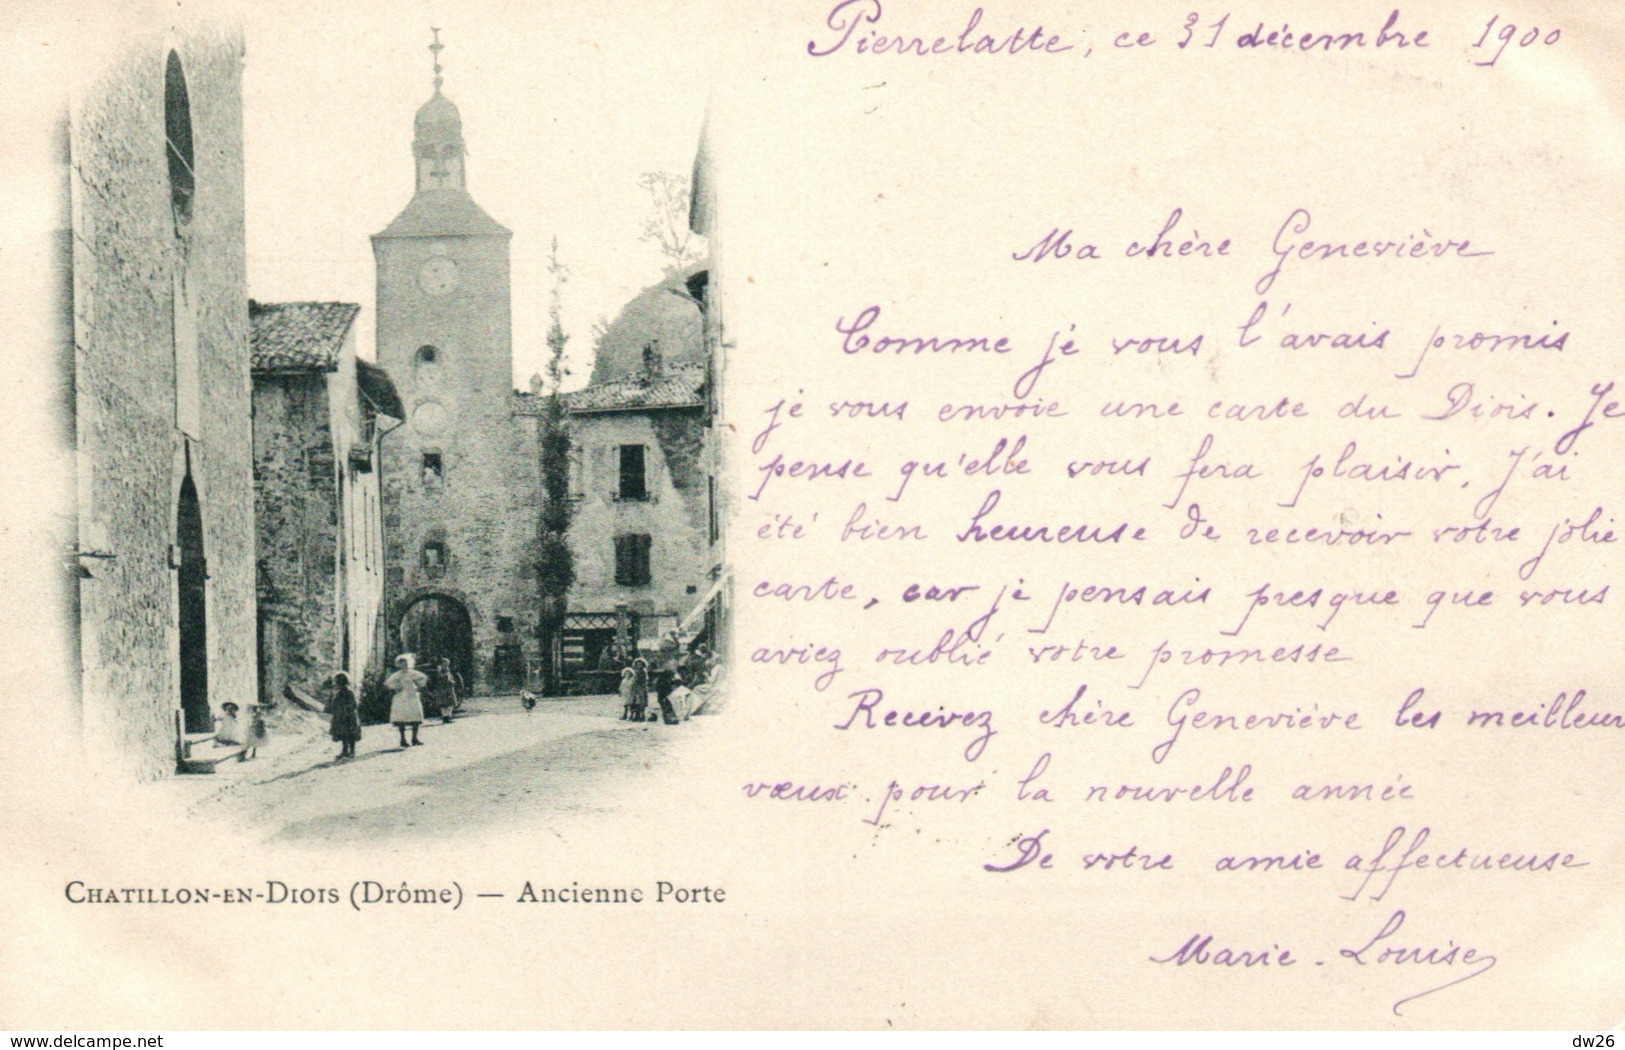 Pierrelatte, ce 31 décembre 1900
Ma chère Geneviève
Comme je vous l'avais promis
je vous envoie une carte du Diois. Je
pense qu'elle vous fera plaisir, J'ai
été bien heureuse de recevoir votre jolie
carte, car je pensais presque que vous
aviez oublié votre promesse
Recevez chère Geneviève les meilleur
vœux pour la nouvelle année
De votre amie affectueuse
Marie-Louise
CHATILLON-EN-DIOIS (Drôme) — Ancienne Porte
www.delcampe.net
dw26